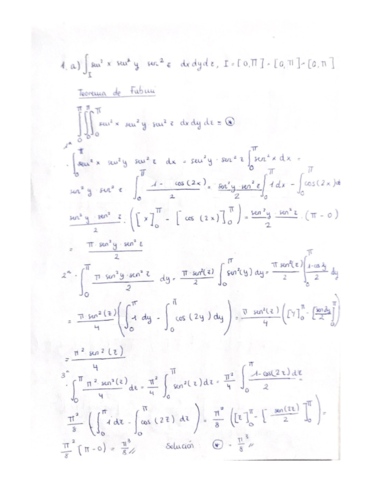 1. a) ∫_I sen² x sen² y sen² z dx dy dz, I = [0,π] × [0,π] × [0,π]
Teorema de Fubini
∫₀^π ∫₀^π ∫₀^π sen² x sen² y sen² z dx dy dz = ⊛
1º
· ∫₀^π sen² x sen² y sen² z dx = sen² y · sen² z ∫₀^π sen² x dx =
sen² y sen² z ∫₀^π (1 - cos(2x))/2 = (sen² y sen² z)/2 ∫₀^π 1 dx - ∫₀^π cos(2x) dx
(sen² y · sen² z)/2 · ([x]₀^π - [cos(2x)]₀^π) = (sen² y sen² z)/2 · (π - 0)
= (π sen² y sen² z)/2
2º · ∫₀^π (π sen² y · sen² z)/2 dy = (π · sen²(z))/2 ∫₀^π sen²(y) dy = (π sen²(z))/2 ∫₀^π (1 - cos 2y)/2 dy
= (π · sen²(z))/4 (∫₀^π 1 dy - ∫₀^π cos(2y) dy) = (π sen²(z))/4 ([y]₀^π - [sen 2y/2]₀^π)
= (π² sen²(z))/4
3º
· ∫₀^π (π² sen²(z))/4 dz = π²/4 ∫₀^π sen²(z) dz = π²/4 ∫₀^π (1 - cos(2z) dz)/2 =
π²/8 (∫₀^π 1 dz - ∫₀^π cos(2z) dz) = π²/8 ([z]₀^π - [sen(2z)/2]₀^π) =
π²/8 (π - 0) = π³/8 // Solución ⊛ = π³/8 //